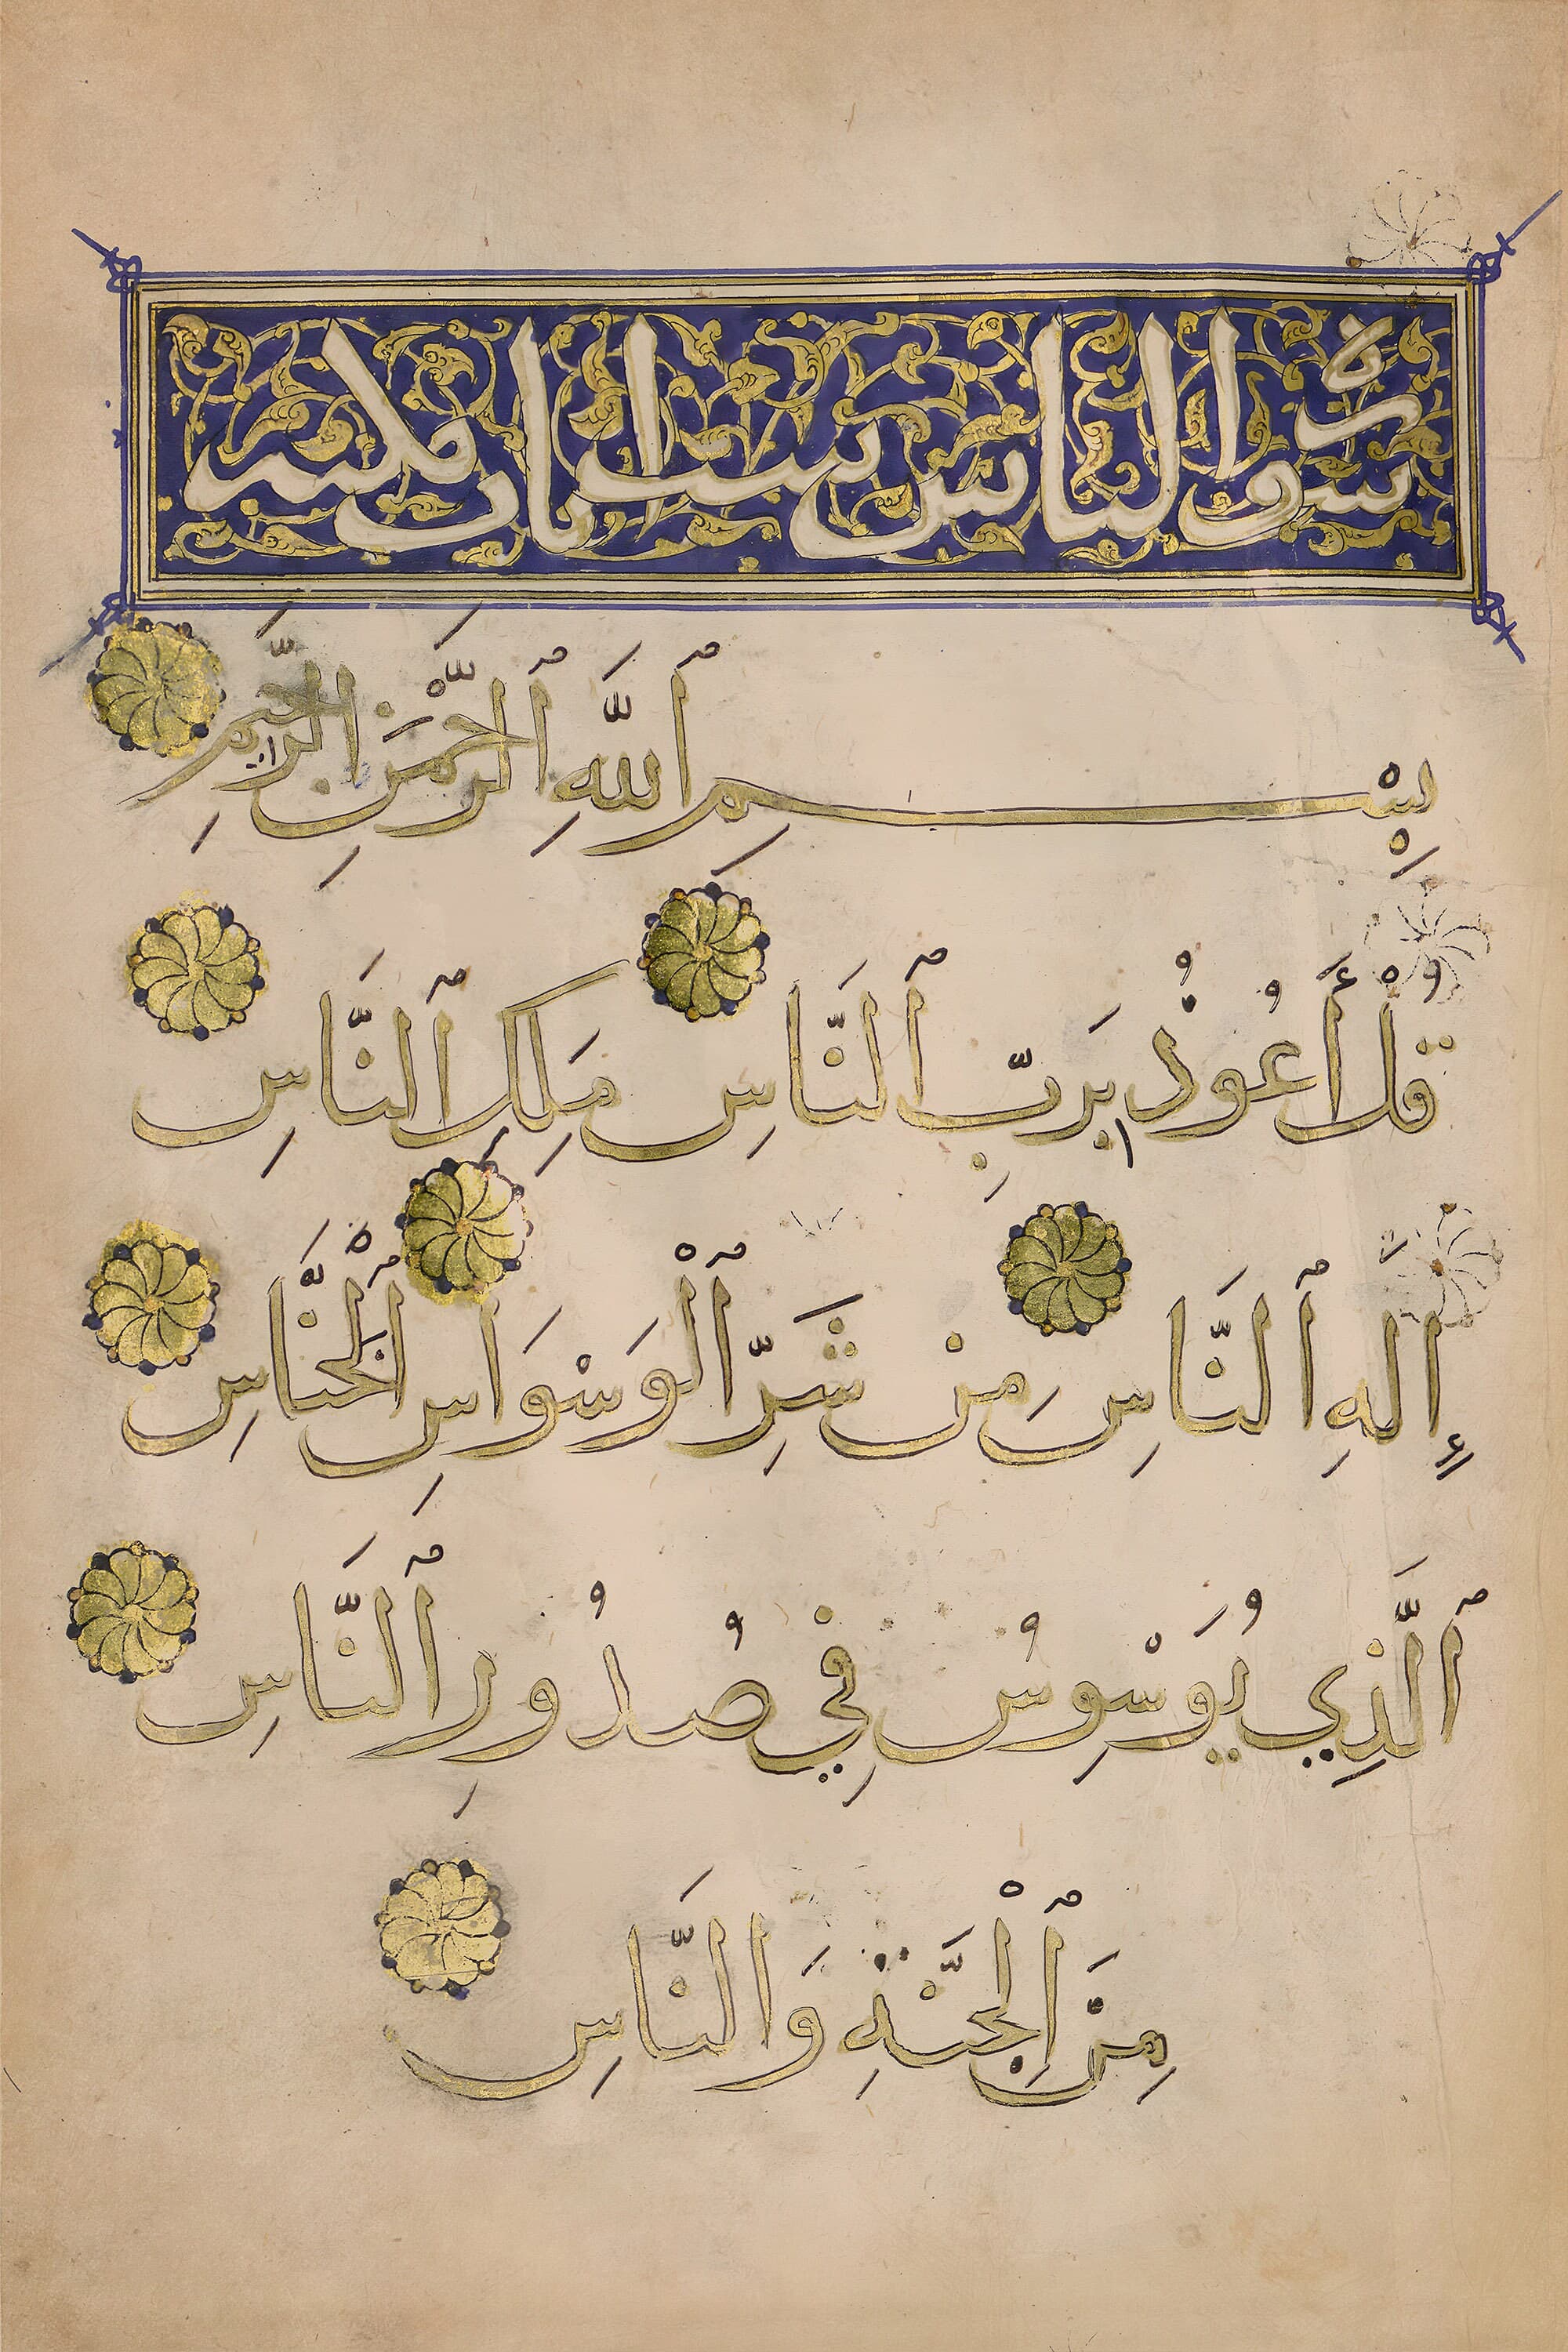 سورة الناس ست ايات مكية
بِسْمِ ٱللَّهِ ٱلرَّحْمَٰنِ الرَّحِيمِ
قُلْ أَعُوذُ بِرَبِّ ٱلنَّاسِ مَلِكِ ٱلنَّاسِ
إِلَٰهِ ٱلنَّاسِ مِن شَرِّ ٱلْوَسْوَاسِ ٱلْخَنَّاسِ
ٱلَّذِي يُوَسْوِسُ فِي صُدُورِ ٱلنَّاسِ
مِنَ ٱلْجِنَّةِ وَالنَّاسِ